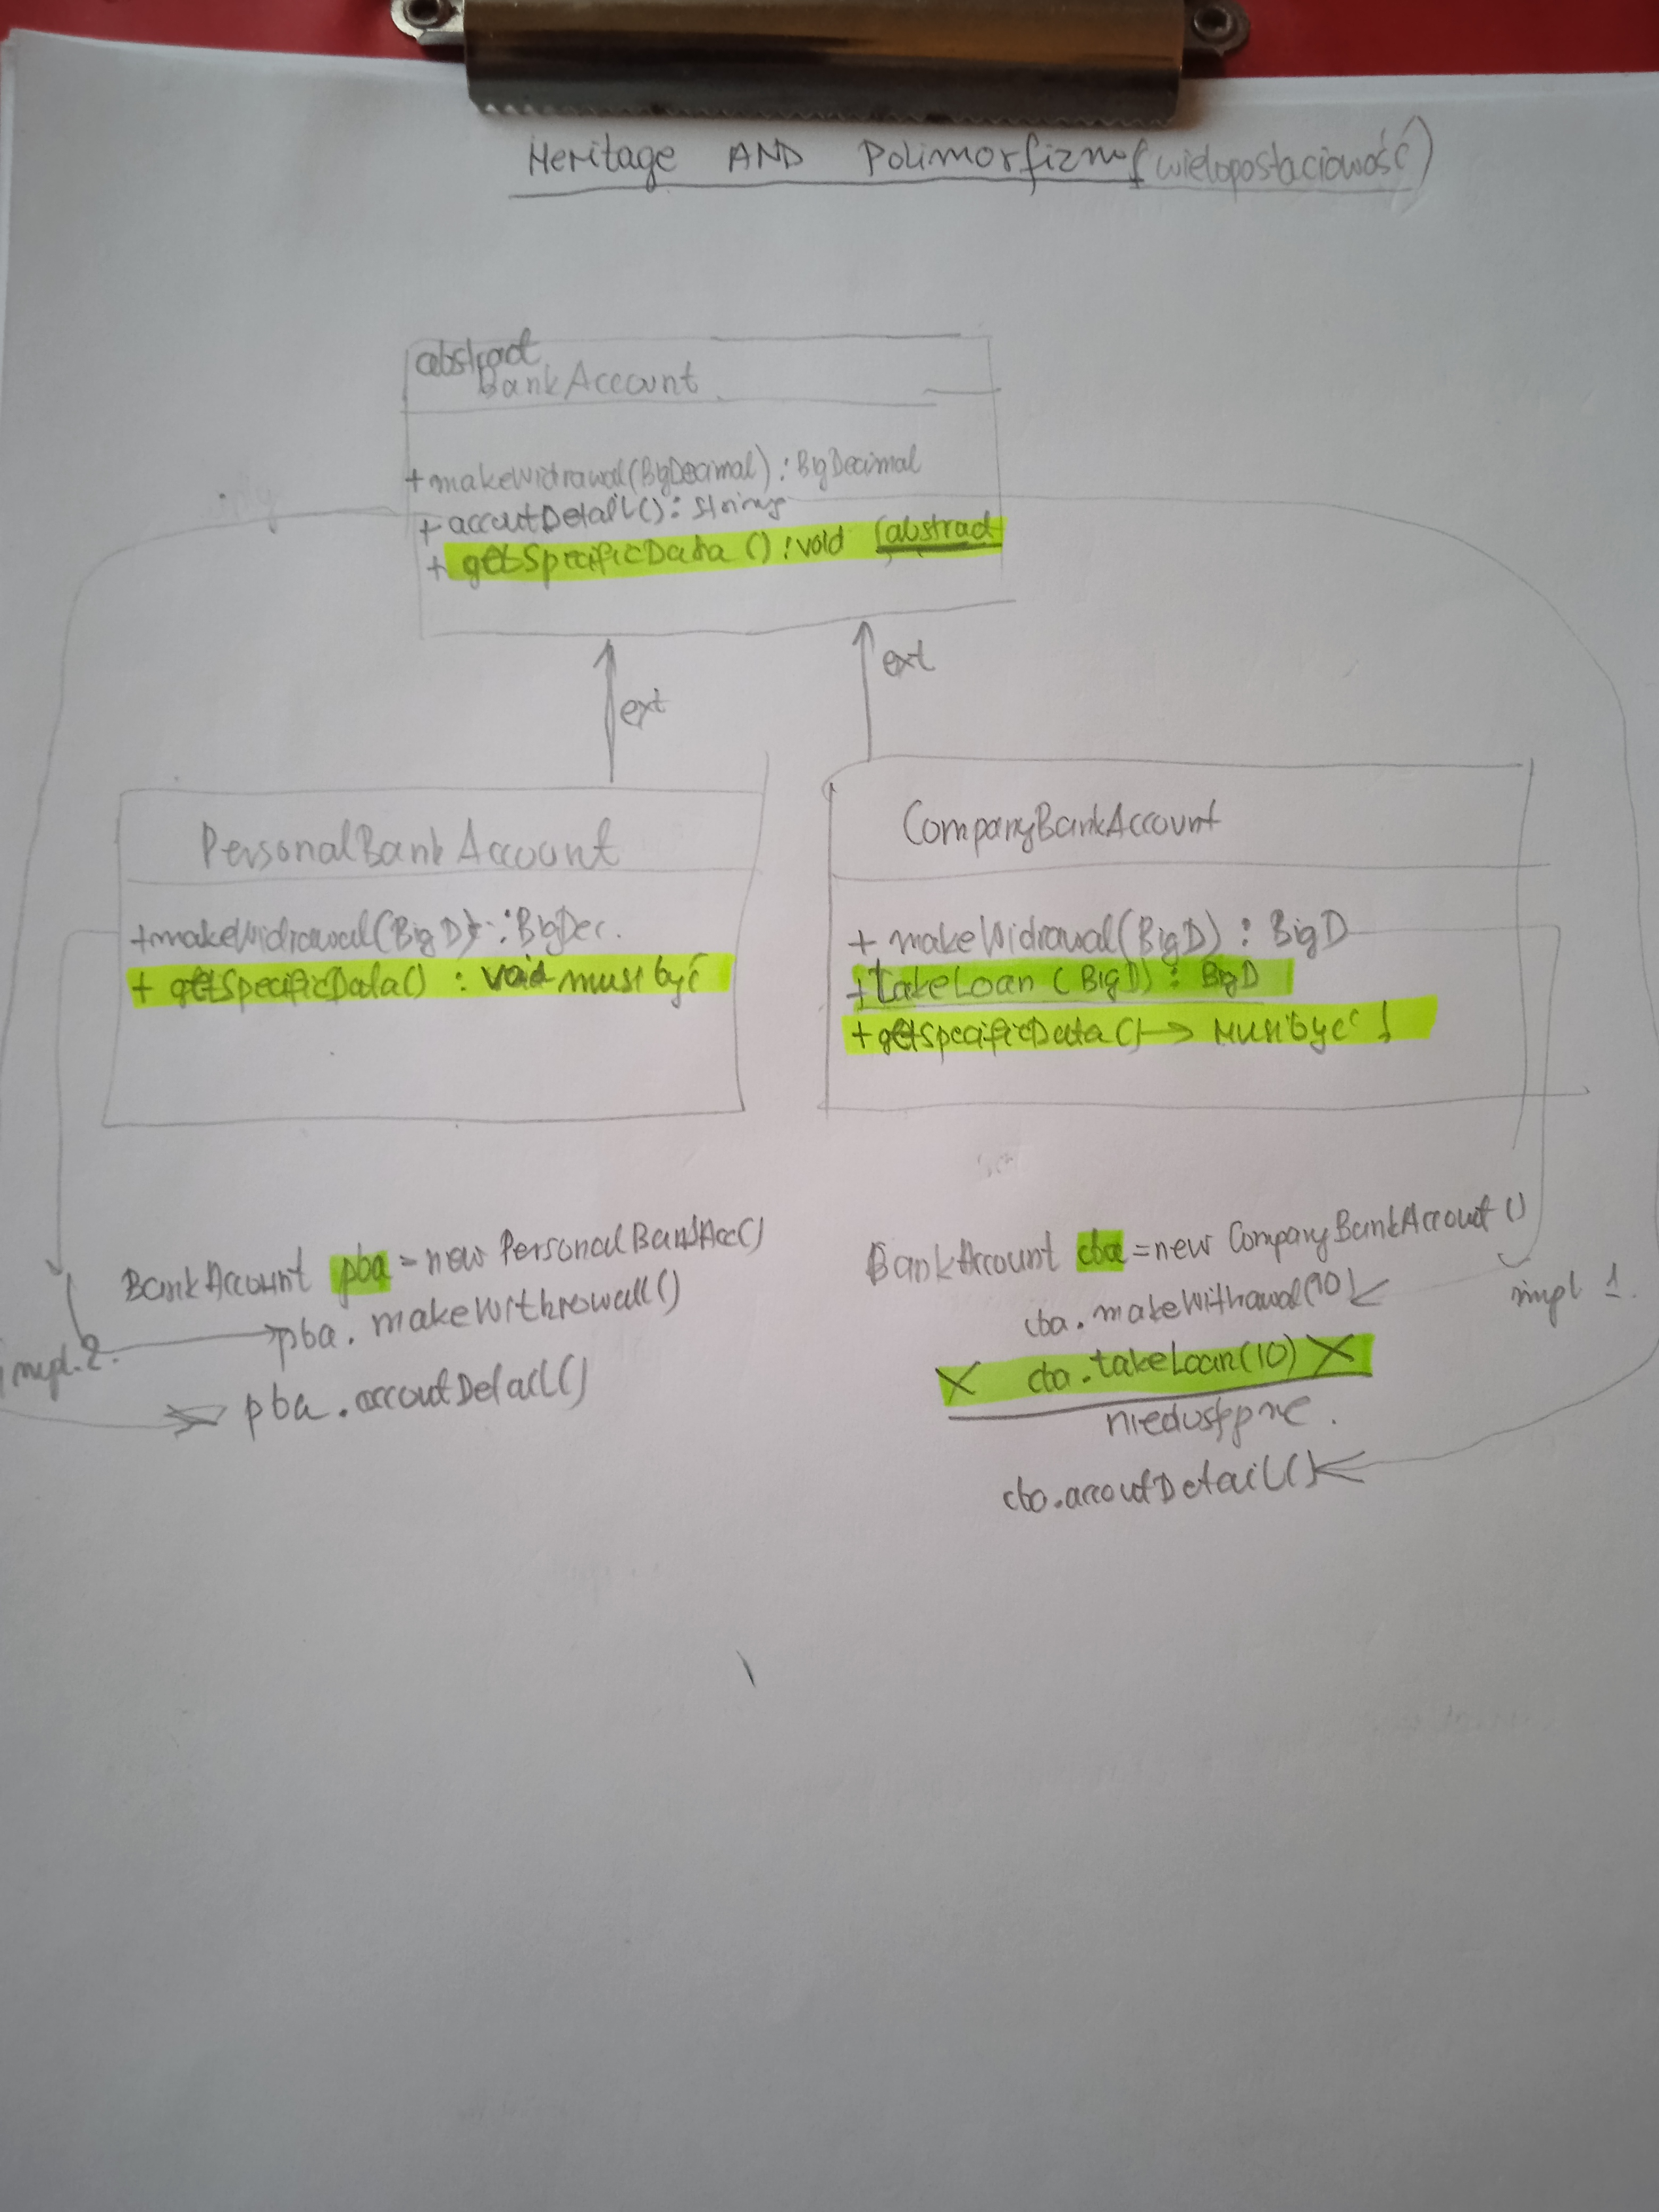 Heritage AND Polimorfizm (wielopostaciowość)
abstract
BankAccount
+makeWidrawal(BigDecimal) : BigDecimal
+ accoutDetail() : String
+ getSpecificData () : void (abstract
ext
ext
PersonalBankAccount
+makeWidrawal(BigD) : BigDec.
+ getSpecificData() : void musi być
CompanyBankAccount
+ makeWidrawal(BigD) : BigD
+takeLoan (BigD) : BigD
+getSpecificData() → Musi być !
BankAccount pba = new PersonalBankAcc()
pba. makeWithrowall()
impl. 2.
pba .accoutDetail()
BankAccount cba = new CompanyBankAccount ()
cba. makeWithawal(10)
impl 1.
X cba. takeLoan(10) X
cba.accoutDetail()